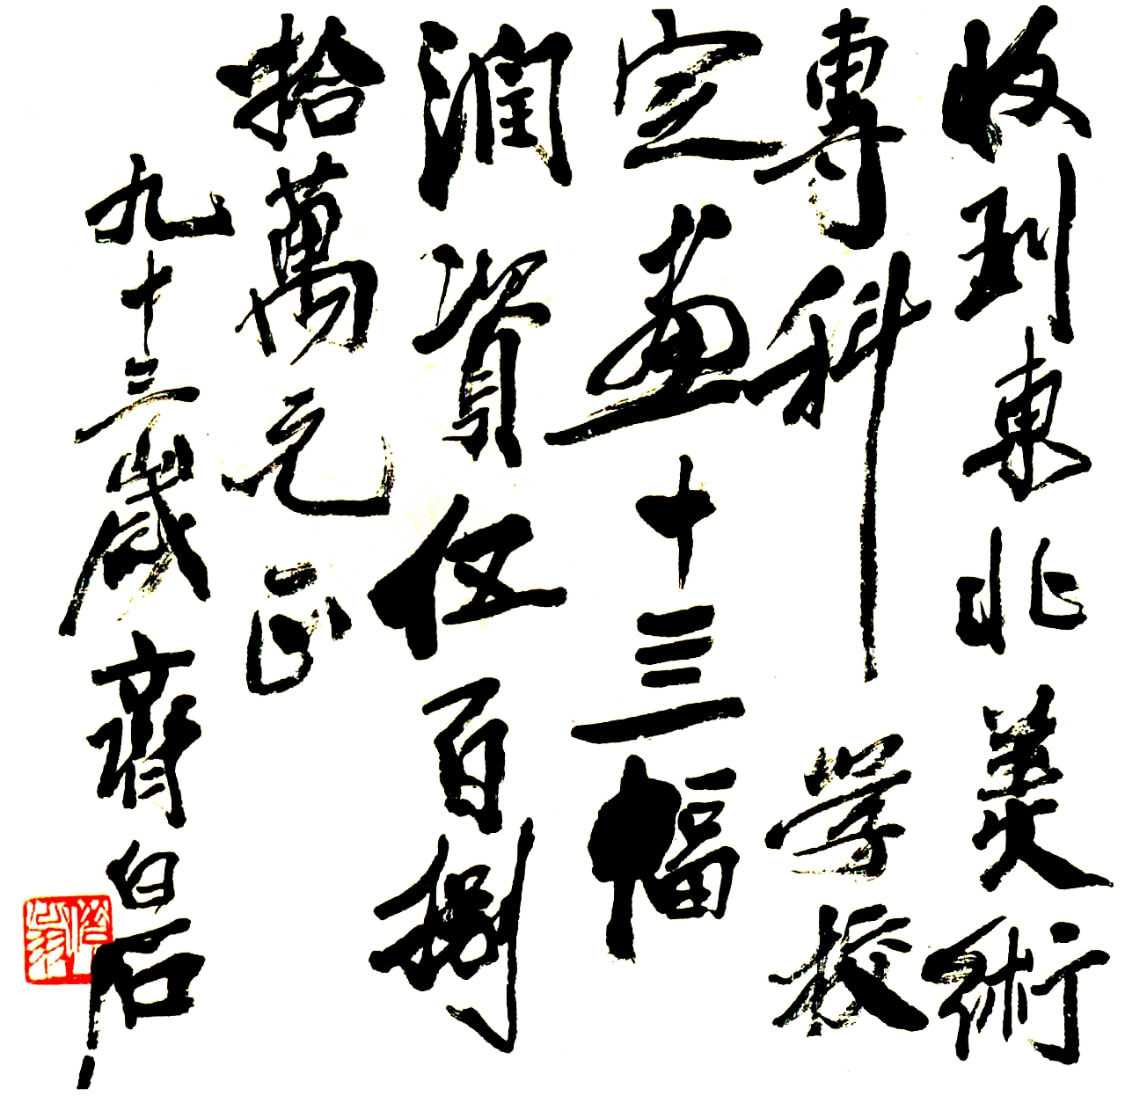 收到東北美術
專科學校
定畫十三幅
潤資伍百捌
拾萬元正
九十三歲齊白石